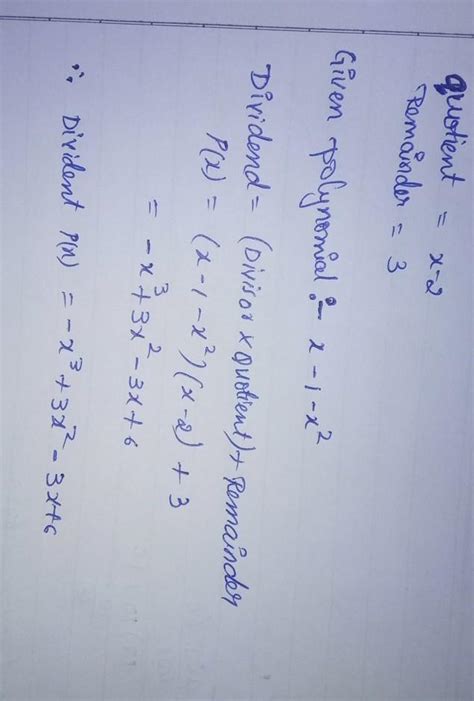 Quotient = x-2
Remainder = 3
Given polynomial :- x-1-x²
Dividend = (Divisor x Quotient) + Remainder
P(x) = (x-1-x²)(x-2) + 3
= -x³+3x²-3x+6
∴ Divident P(x) = -x³+3x²-3x+6